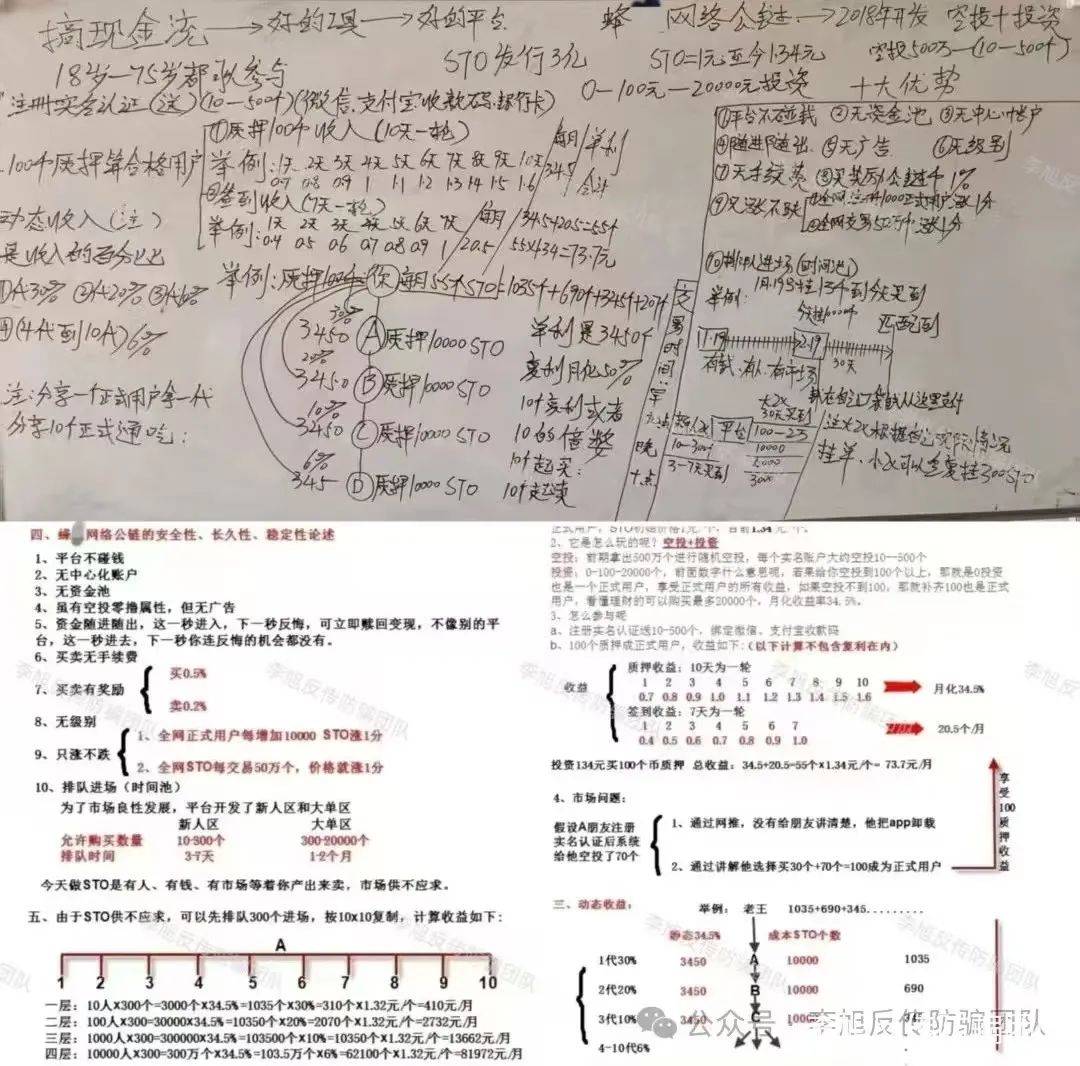 搞现金流→好的工具→好的平台 蜂 网络公链→2018年开发 空投+投资
18岁—75岁都可参与 STO发行3亿 STO=1元至今1.34元 空投500万—(10—500个)
注册实名认证(送)(10—500个)(微信.支付宝.收款码.银行卡) 0—100元—20000元投资 十大优势
100个质押算合格用户
①质押100个收入(10天一轮)
举例:1天 2天 3天 4天 5天 6天 7天 8天 9天 10天
0.7 0.8 0.9 1 1.1 1.2 1.3 1.4 1.5 1.6
每月 34.5 单利 合计
②签到收入(7天一轮)
举例:1天 2天 3天 4天 5天 6天 7天
0.4 0.5 0.6 0.7 0.8 0.9 1
每月 20.5
34.5+20.5=55个
55×1.34=73.7元
动态收入(注)
是收入的百分比
①代30% ②代20% ③代10%
④(4代到10代)6%
注:分享一个正式用户拿一代
分享10个正式通吃:
举例:质押100个 你 每月55个STO=1035个+690个+345个+207个
30%
3450 A 质押10000 STO
20%
3450 B 质押10000 STO
10%
3450 C 质押10000 STO
6%
345 D 质押10000 STO
单利是3450个
复利月化50%
10个复利或者
10的倍数
10个起买:
10个起卖
①平台不碰钱 ②无资金池 ③无中心帐户
④随进随出 ⑤无广告 ⑥无级别
⑦无手续费 ⑧买奖励公链个1%
⑨只涨不跌 ①全网注册1000正式用户涨1分
②全网交易50万个涨1分
⑩排队进场(时间池)
举例:
1.19 2.19 30天
匹配到
有钱.有人.有市场
交易时间:早九点 晚十点
新人区 10—300个
3-7天买到
平台
大区
30天买到
10000
5000
3000
挂单.
四、蜂 网络公链的安全性、长久性、稳定性论述
1、平台不碰钱
2、无中心化账户
3、无资金池
4、虽有空投零撸属性，但无广告
5、资金随进随出，这一秒进入，下一秒反悔，可立即赎回变现，不像别的平
台，这一秒进去，下一秒你连反悔的机会都没有。
6、买卖无手续费
7、买卖有奖励
买0.5%
卖0.2%
8、无级别
9、只涨不跌
1、全网正式用户每增加10000 STO涨1分
2、全网STO每交易50万个，价格就涨1分
10、排队进场（时间池）
为了市场良性发展，平台开发了新人区和大单区
新人区 大单区
允许购买数量 10-300个 300-20000个
排队时间 3-7天 1-2个月
今天做STO是有人、有钱、有市场等着你产出来卖，市场供不应求。
五、由于STO供不应求，可以先排队300个进场，按10x10复制，计算收益如下：
A
1 2 3 4 5 6 7 8 9 10
一层：10人x300个=3000个x34.5%=1035个x30%=310个x1.32元/个=410元/月
二层：100人x300=30000x34.5%=10350个x20%=2070个x1.32元/个=2732元/月
三层：1000人x300=300000x34.5%=103500个x10%=10350个x1.32元/个=13662元/月
四层：10000人x300=300万个x34.5%=103.5万个x6%=62100个x1.32元/个=81972元/月
2、它是怎么玩的呢？空投+投资
空投：前期拿出500万个进行随机空投，每个实名账户大约空投10--500个
投资：0-100-20000个，前面数字什么意思呢，若果给你空投到100个以上，那就是0投资
也是一个正式用户，享受正式用户的所有收益，如果空投不到100，那就补齐100也是正式
用户，看懂理财的可以购买最多20000个，月化收益率34.5%。
3、怎么参与呢
a、注册实名认证送10-500个，绑定微信、支付宝收款码
b、100个质押成正式用户，收益如下：（以下计算不包含复利在内）
收益
质押收益：10天为一轮
1 2 3 4 5 6 7 8 9 10
0.7 0.8 0.9 1.0 1.1 1.2 1.3 1.4 1.5 1.6
月化34.5%
签到收益：7天为一轮
1 2 3 4 5 6 7
0.4 0.5 0.6 0.7 0.8 0.9 1.0
20.5个/月
投资134元买100个币质押 总收益：34.5+20.5=55个x1.34元/个= 73.7元/月
4、市场问题：
假设A朋友注册
实名认证后系统
给他空投了70个
1、通过网推，没有给朋友讲清楚，他把app卸载
2、通过讲解他选择买30个+70个=100成为正式用户
享受100质押收益
三、动态收益：
举例： 老王 1035+690+345.........
静态34.5% 成本STO个数
1代30% 3450 A 10000 1035
2代20% 3450 B 10000 690
3代10% 3450 C
4-10代6%
公众号 李旭反传防骗团队
李旭反传防骗团队